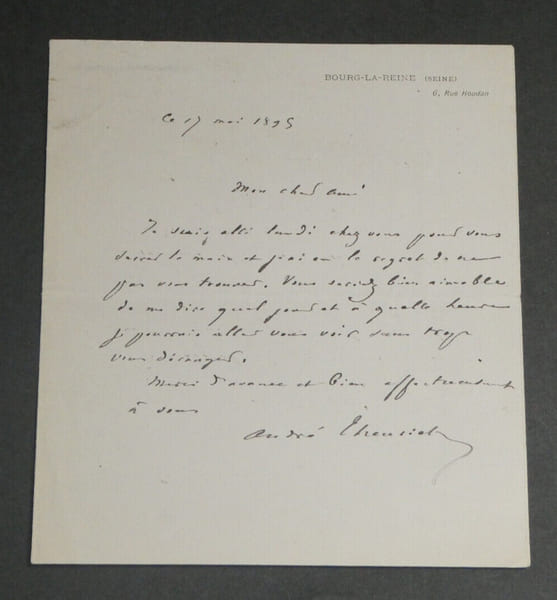 BOURG-LA-REINE (SEINE)
6, Rue Houdan
Ce 17 mai 1895
Mon cher ami
Je suis allé lundi chez vous pour vous
serrer la main et j'ai eu le regret de ne
pas vous trouver. Vous seriez bien aimable
de me dire quel jour et à quelle heure
je pourrais aller vous voir sans trop
vous déranger.
Merci d'avance et bien affectueusement
à vous
André Theuriet